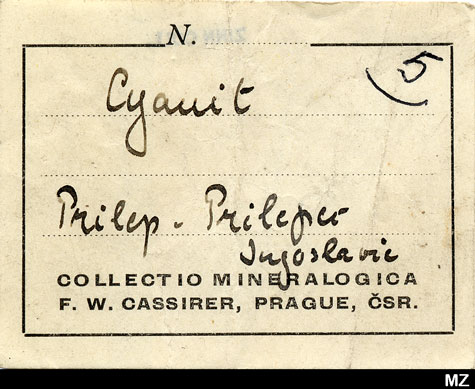 N.
5
Cyanit
Prilep - Prilepec
Jugoslavie
COLLECTIO MINERALOGICA
F. W. CASSIRER, PRAGUE, ČSR.
MZ